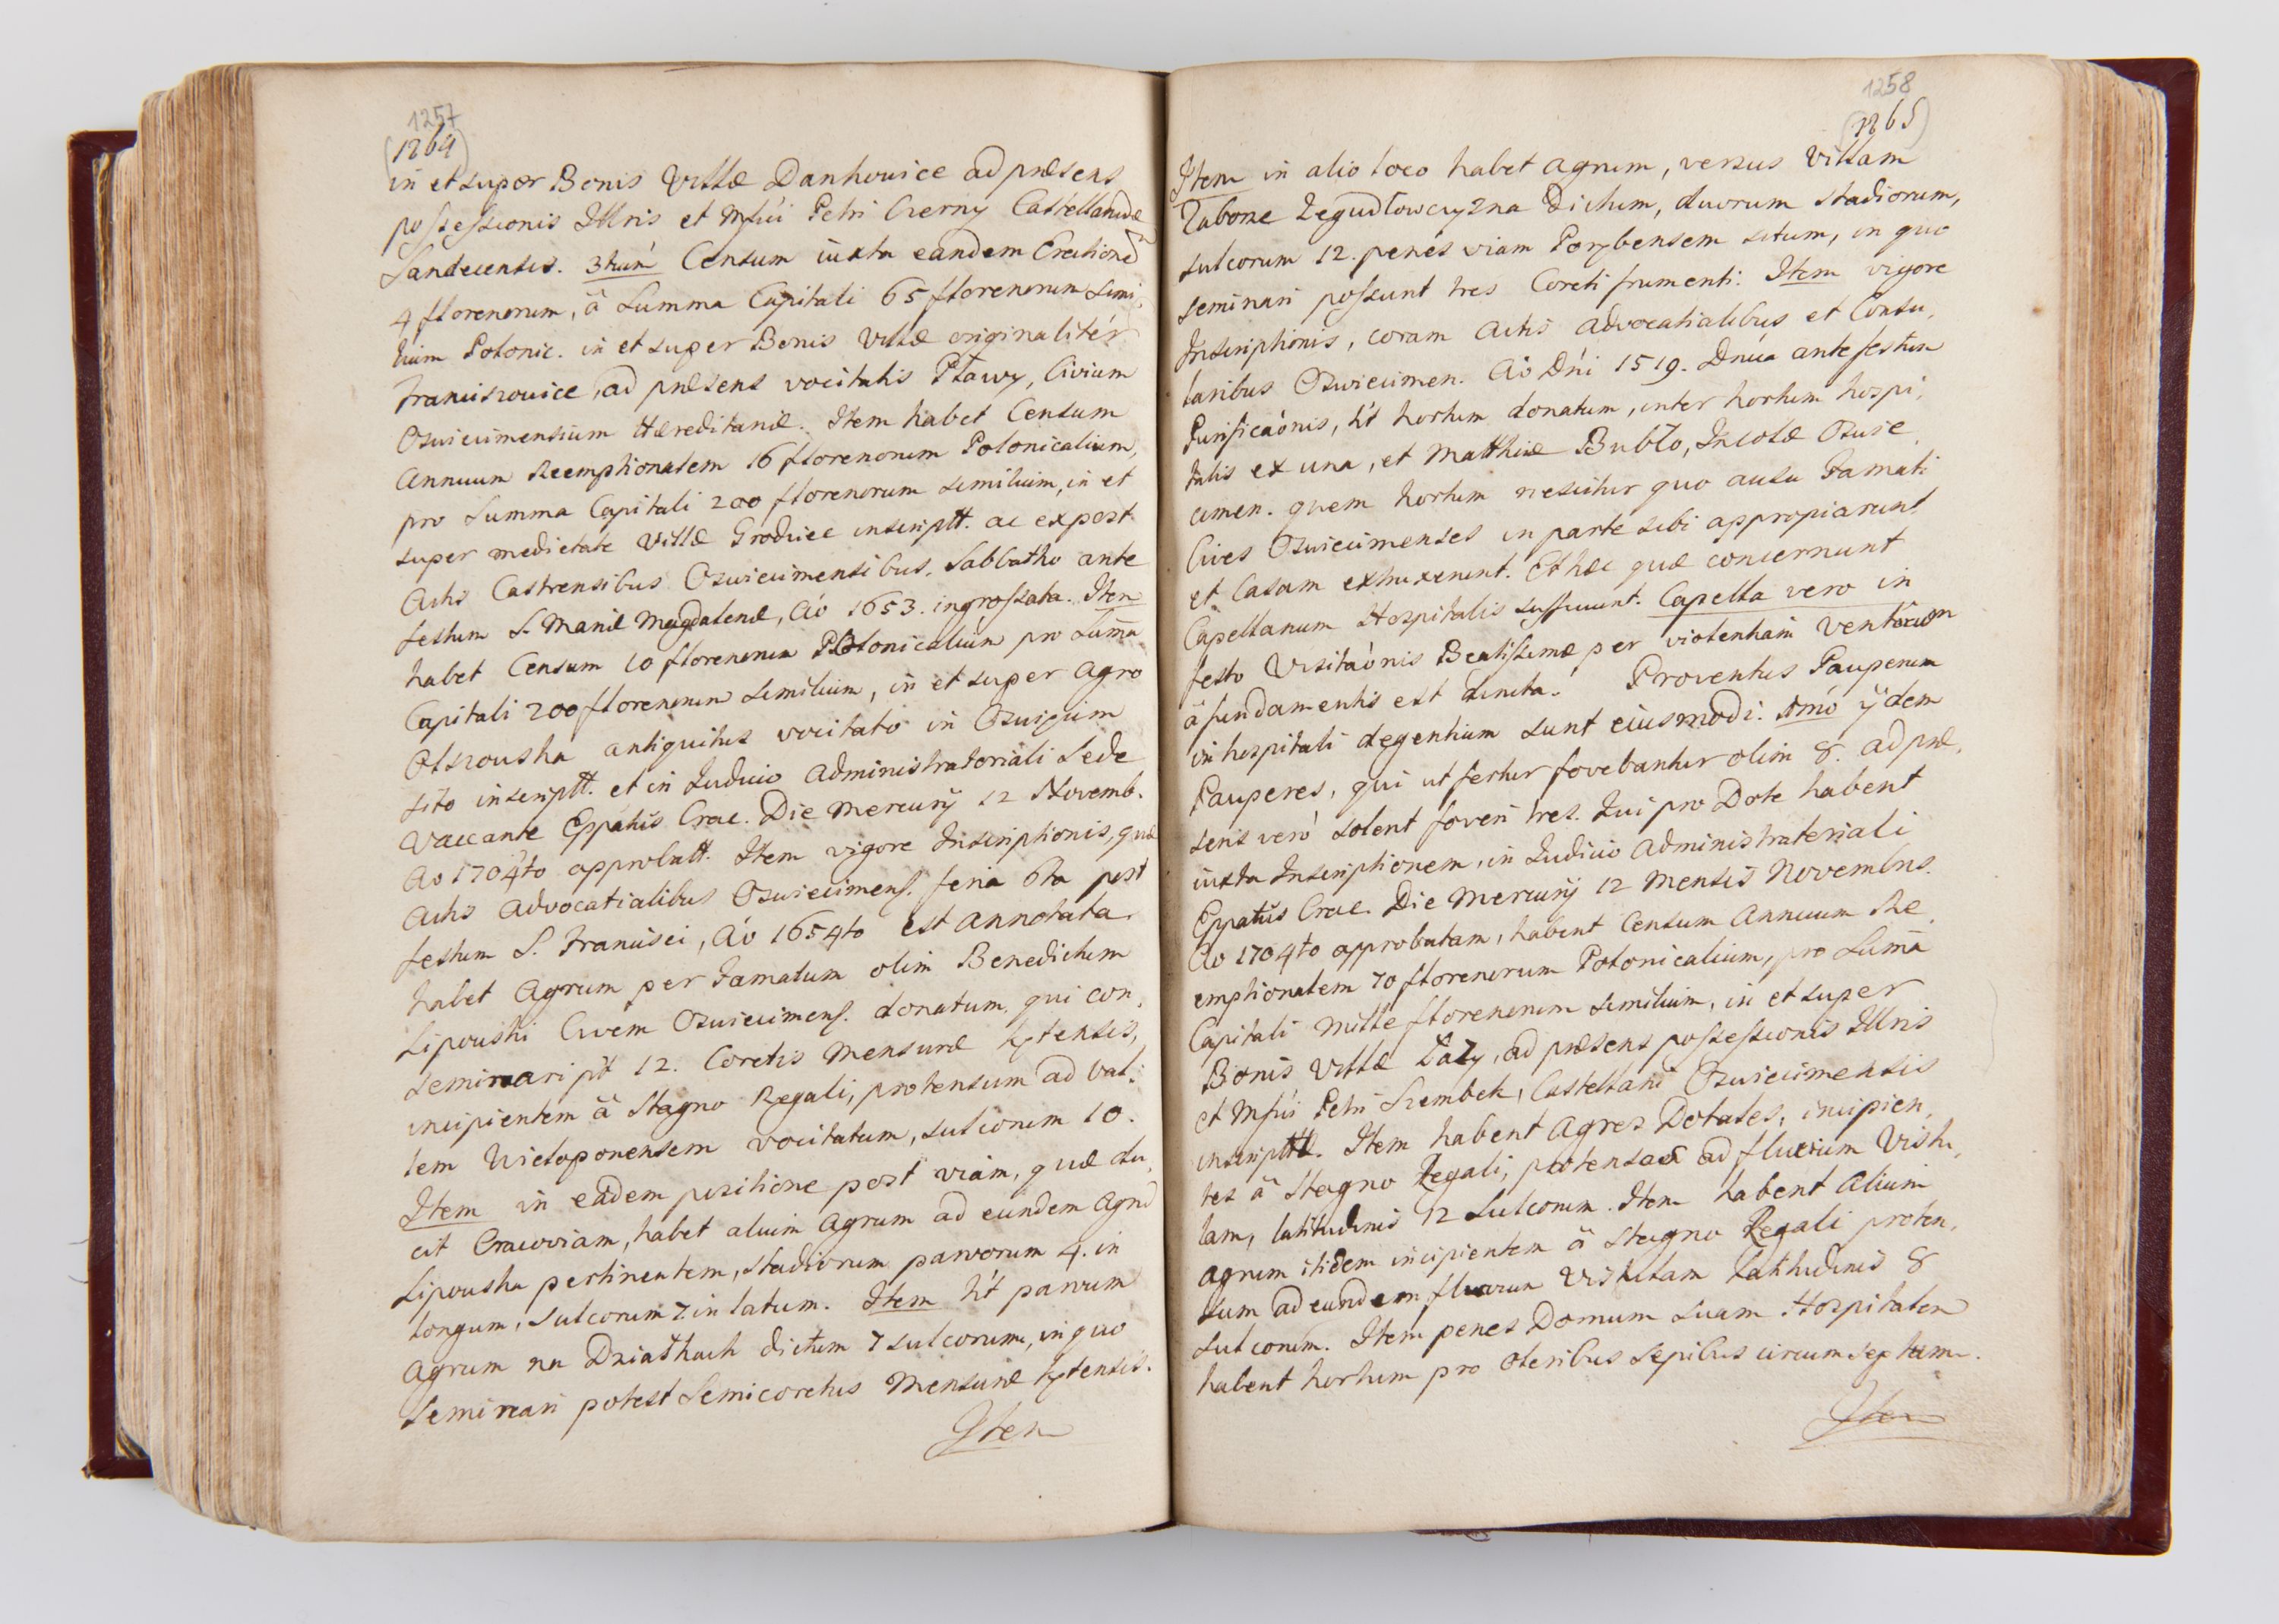 1257
(1264)
in et super Bonis Villæ Dankowice ad præsens
possessionis Illris et Mfici Petri Czerny Castellanidæ
Sandecensis. 3tium Censum iuxta eandem Erectionem
4 florenorum, â Summa Capitali 65 florenorum simi,
lium Polonic. in et super Bonis Villæ originalitér
Franciszowice, ad præsens vocitatis Pławy, Civium
Oswiecimensium Hæreditariæ. Item habet Censum
Annuum Reemptionalem 16 florenorum Polonicalium,
pro Summa Capitali 200 florenorum similium, in et
super medietate Villæ Grodziec inscriptt. ac expost
Actis Castrensibus Oswiecimensibus, Sabbatho ante
festum S. Mariæ Magdalenæ, Aô 1653. ingrossata. Item
habet Censum 10 florenorum Polonicalium pro Suma
Capitali 200 florenorum similium, in et super Agro
Olszowska antiquitus vocitato in Oswięcim
sito inscriptt. et in Iudicio Administratoriali Sede
Vaccante Eppatûs Crac. Die Mercurÿ 12 Novemb.
Ao 1704to approbatt. Item vigore Inscriptionis, quæ
Actis Advocatialibus Oswiecimens. feria 6ta post
festum S. Francisci, Aô 1654to est annotata
habet Agrum per Famatum olim Benedictum
Lipowski Civem Oswiecimens. donatum, qui con,
seminari pt 12. Coretis Mensuræ
incipientem â Stagno Regali, protensum ad Val,
lem Wielopolensem vocitatum, sulcorum 10.
Item in eadem positione post viam, quæ du,
cit Cracoviam, habet alium Agrum ad eundem Agrũ
Lipowska pertinentem, stadiorum parvorum 4. in
longum, sulcorum 7 in latum. Item ht parvum
Agrum na Działkach dictum 7 sulcorum, in quo
seminari potest Semicoretus Mensuræ
Item
1258
(1265)
Item in alio loco habet agrum, versus Villam
Zaborze Zegudłowczyzna Dictum, duorum stadiorum,
sulcorum 12. penes viam Porybensem situm, in quo
seminari possunt tres Coreti frumenti. Item vigore
Inscriptionis, coram Actis Advocatialibus et Consu,
laribus Oswiecimen. Aô Dni 1519. Dnica ante festum
Purificaônis, ht hortum donatum, inter hortum hospi,
talis ex una, et Matthiæ Bubło, Incolæ Oswie,
cimen. quem hortum nescitur quo ausu Famati
Cives Oswiecimenses in parte sibi appropiarunt
et Casam extruxerunt. Et hæc quæ concernunt
Capellanum Hospitalis sufficiunt. Capella vero in
festo Visitaônis Beatissimæ per violentiam Ventorum
â fundamentis est diruta. Proventus Pauperum
in hospitali degentium sunt eiusmodi. 1mô ÿdem
Pauperes, qui ut fertur fovebantur olim 8. ad præ,
sens verô solent foveri tres. Qui pro Dote habent
iuxta Inscriptionem, in Iudicio Administratoriali
Eppatûs Crac. Die Mercurÿ 12 Mensis Novembris.
Ao 1704to approbatam, habent Censum Annuum Re,
emptionalem 70 florenorum Polonicalium, pro Suma
Capitali Mille florenorum similium, in et super
Bonis Villæ Łazy, ad præsens possessionis Illris
et Mfici Petri Szembek, Castellani Oswiecimensis
inscriptæ. Item habent Agros Dotales, incipien,
tes â Stagno Regali, protensos ad fluvium Vistu,
lam, latitudinis 12 Sulcorum. Item habent Alium
Agrum itidem incipientem â Stagno Regali proten,
sum ad eundem fluvium Vistulam latitudinis 8
sulcorum. Item penes Domum suam Hospitalem
habent hortum pro oleribus sepibus circumseptum.
Item